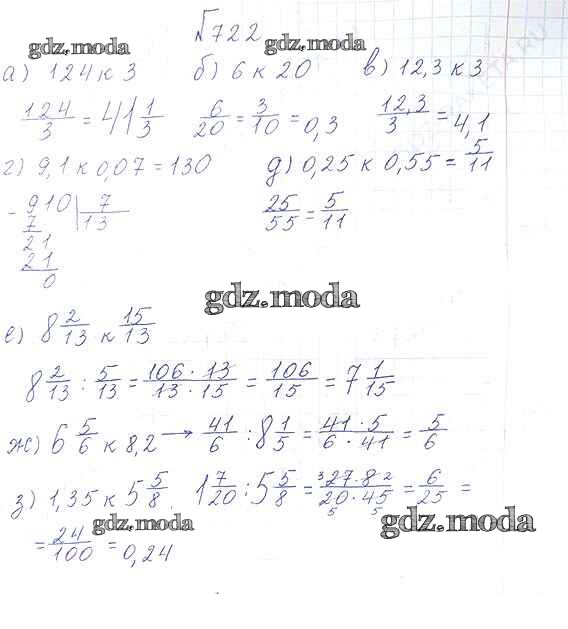 №722
gdz.moda
а) 124 к 3 б) 6 к 20 в) 12,3 к 3
124/3 = 41 1/3 6/20 = 3/10 = 0,3 12,3/3 = 4,1
г) 9,1 к 0,07 = 130 д) 0,25 к 0,55 = 5/11
- 910 | 7 25/55 = 5/11
7 13
21
21
0
gdz.moda
е) 8 2/13 к 15/13
8 2/13 : 5/13 = 106 · 13/13 · 15 = 106/15 = 7 1/15
ж) 6 5/6 к 8,2 → 41/6 : 8 1/5 = 41 · 5/6 · 41 = 5/6
з) 1,35 к 5 5/8. 1 7/20 : 5 5/8 = 3 27 · 8 2/20 · 45 = 6/25 =
5 5
= 24/100 = 0,24
gdz.moda
gdz.moda